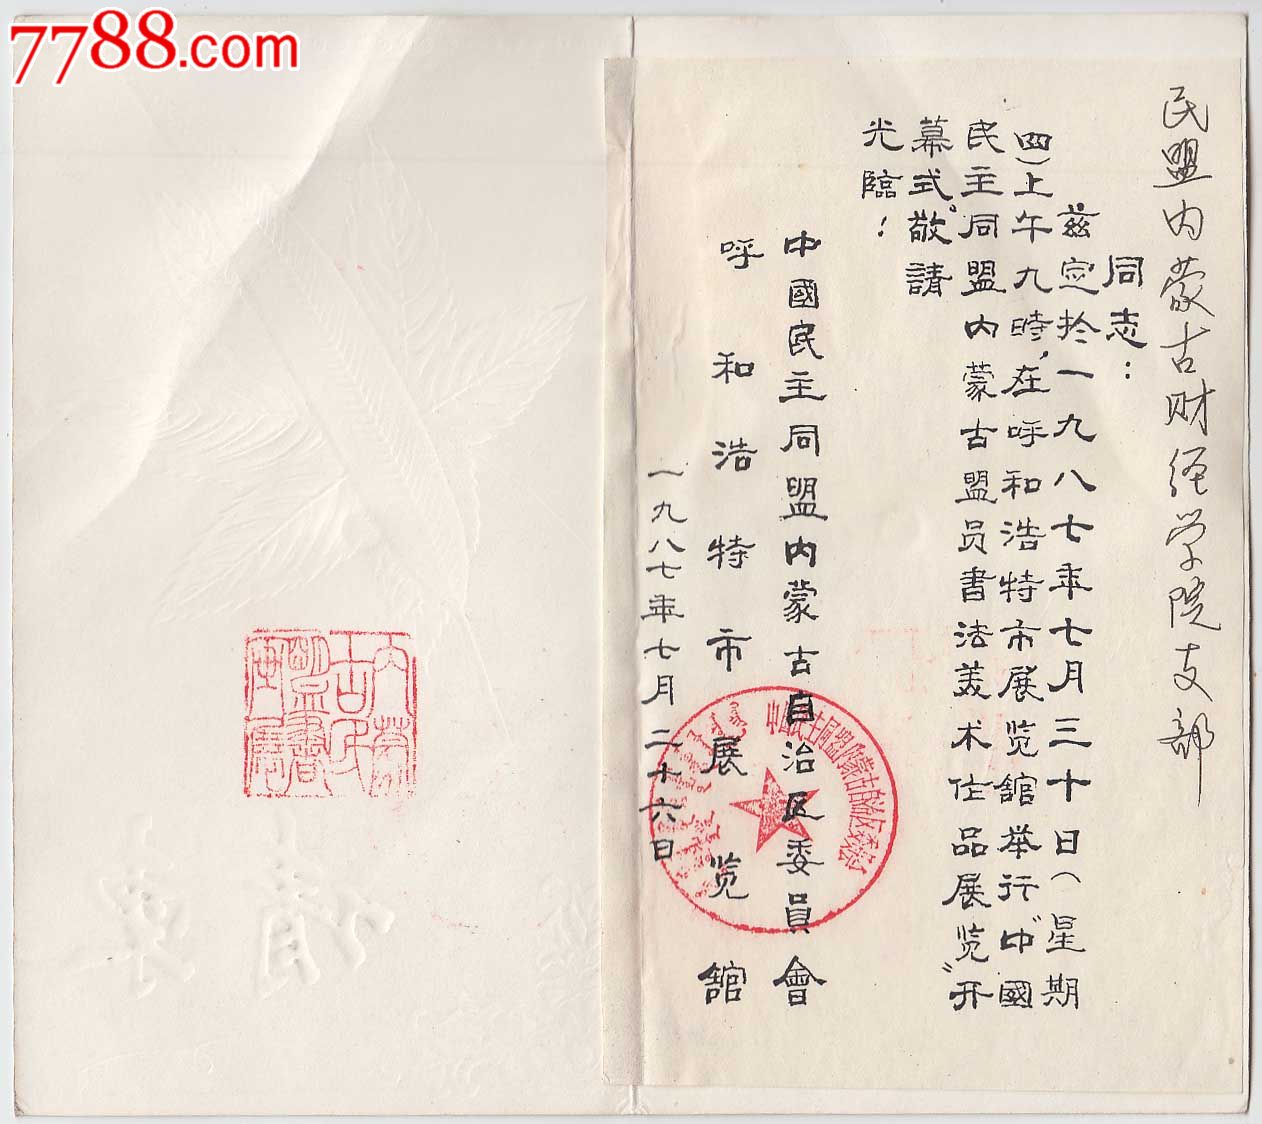 7788.com
民盟内蒙古财经学院支部
同志：
兹定于一九八七年七月三十日（星期
四）上午九時，在呼和浩特市展览舘举行“中國
民主同盟内蒙古盟员書法美术作品展览”开
幕式。敬請
光臨！
中國民主同盟内蒙古自治区委員會
呼和浩特市展览舘
一九八七年七月二十六日
中国民主同盟内蒙古自治区委员会
請柬